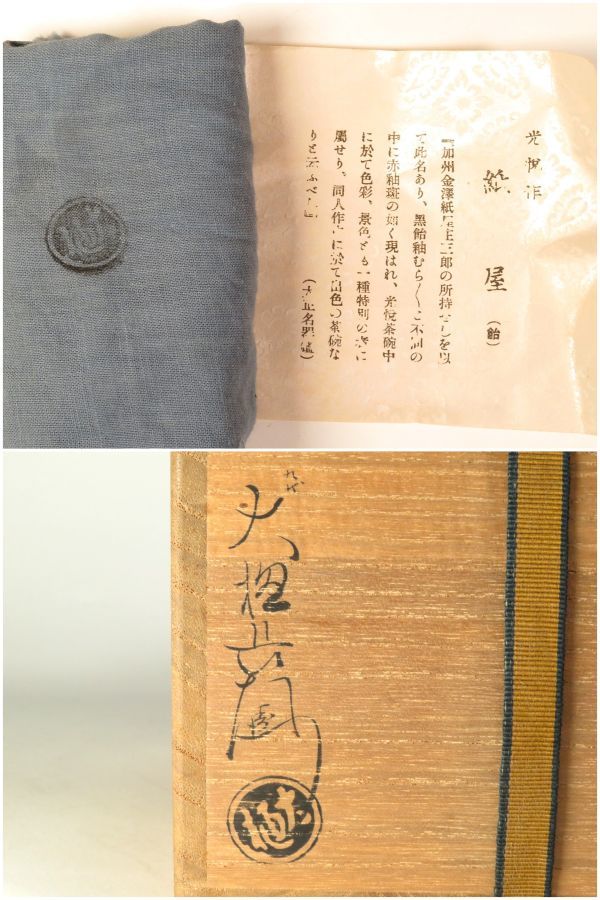 光悦作
紙屋（飴）
加州金澤紙屋庄三郎の所持せしを以
て此名あり、黒飴釉むら〳〵と不同の
中に赤釉斑の如く現はれ、光悦茶碗中
に於て色彩、景色とも一種特別の者に
屬せり、同人作中に於て出色の茶碗な
りと云ふべし』
（大正名器鑑）
九代
大樋長左衛門
大樋